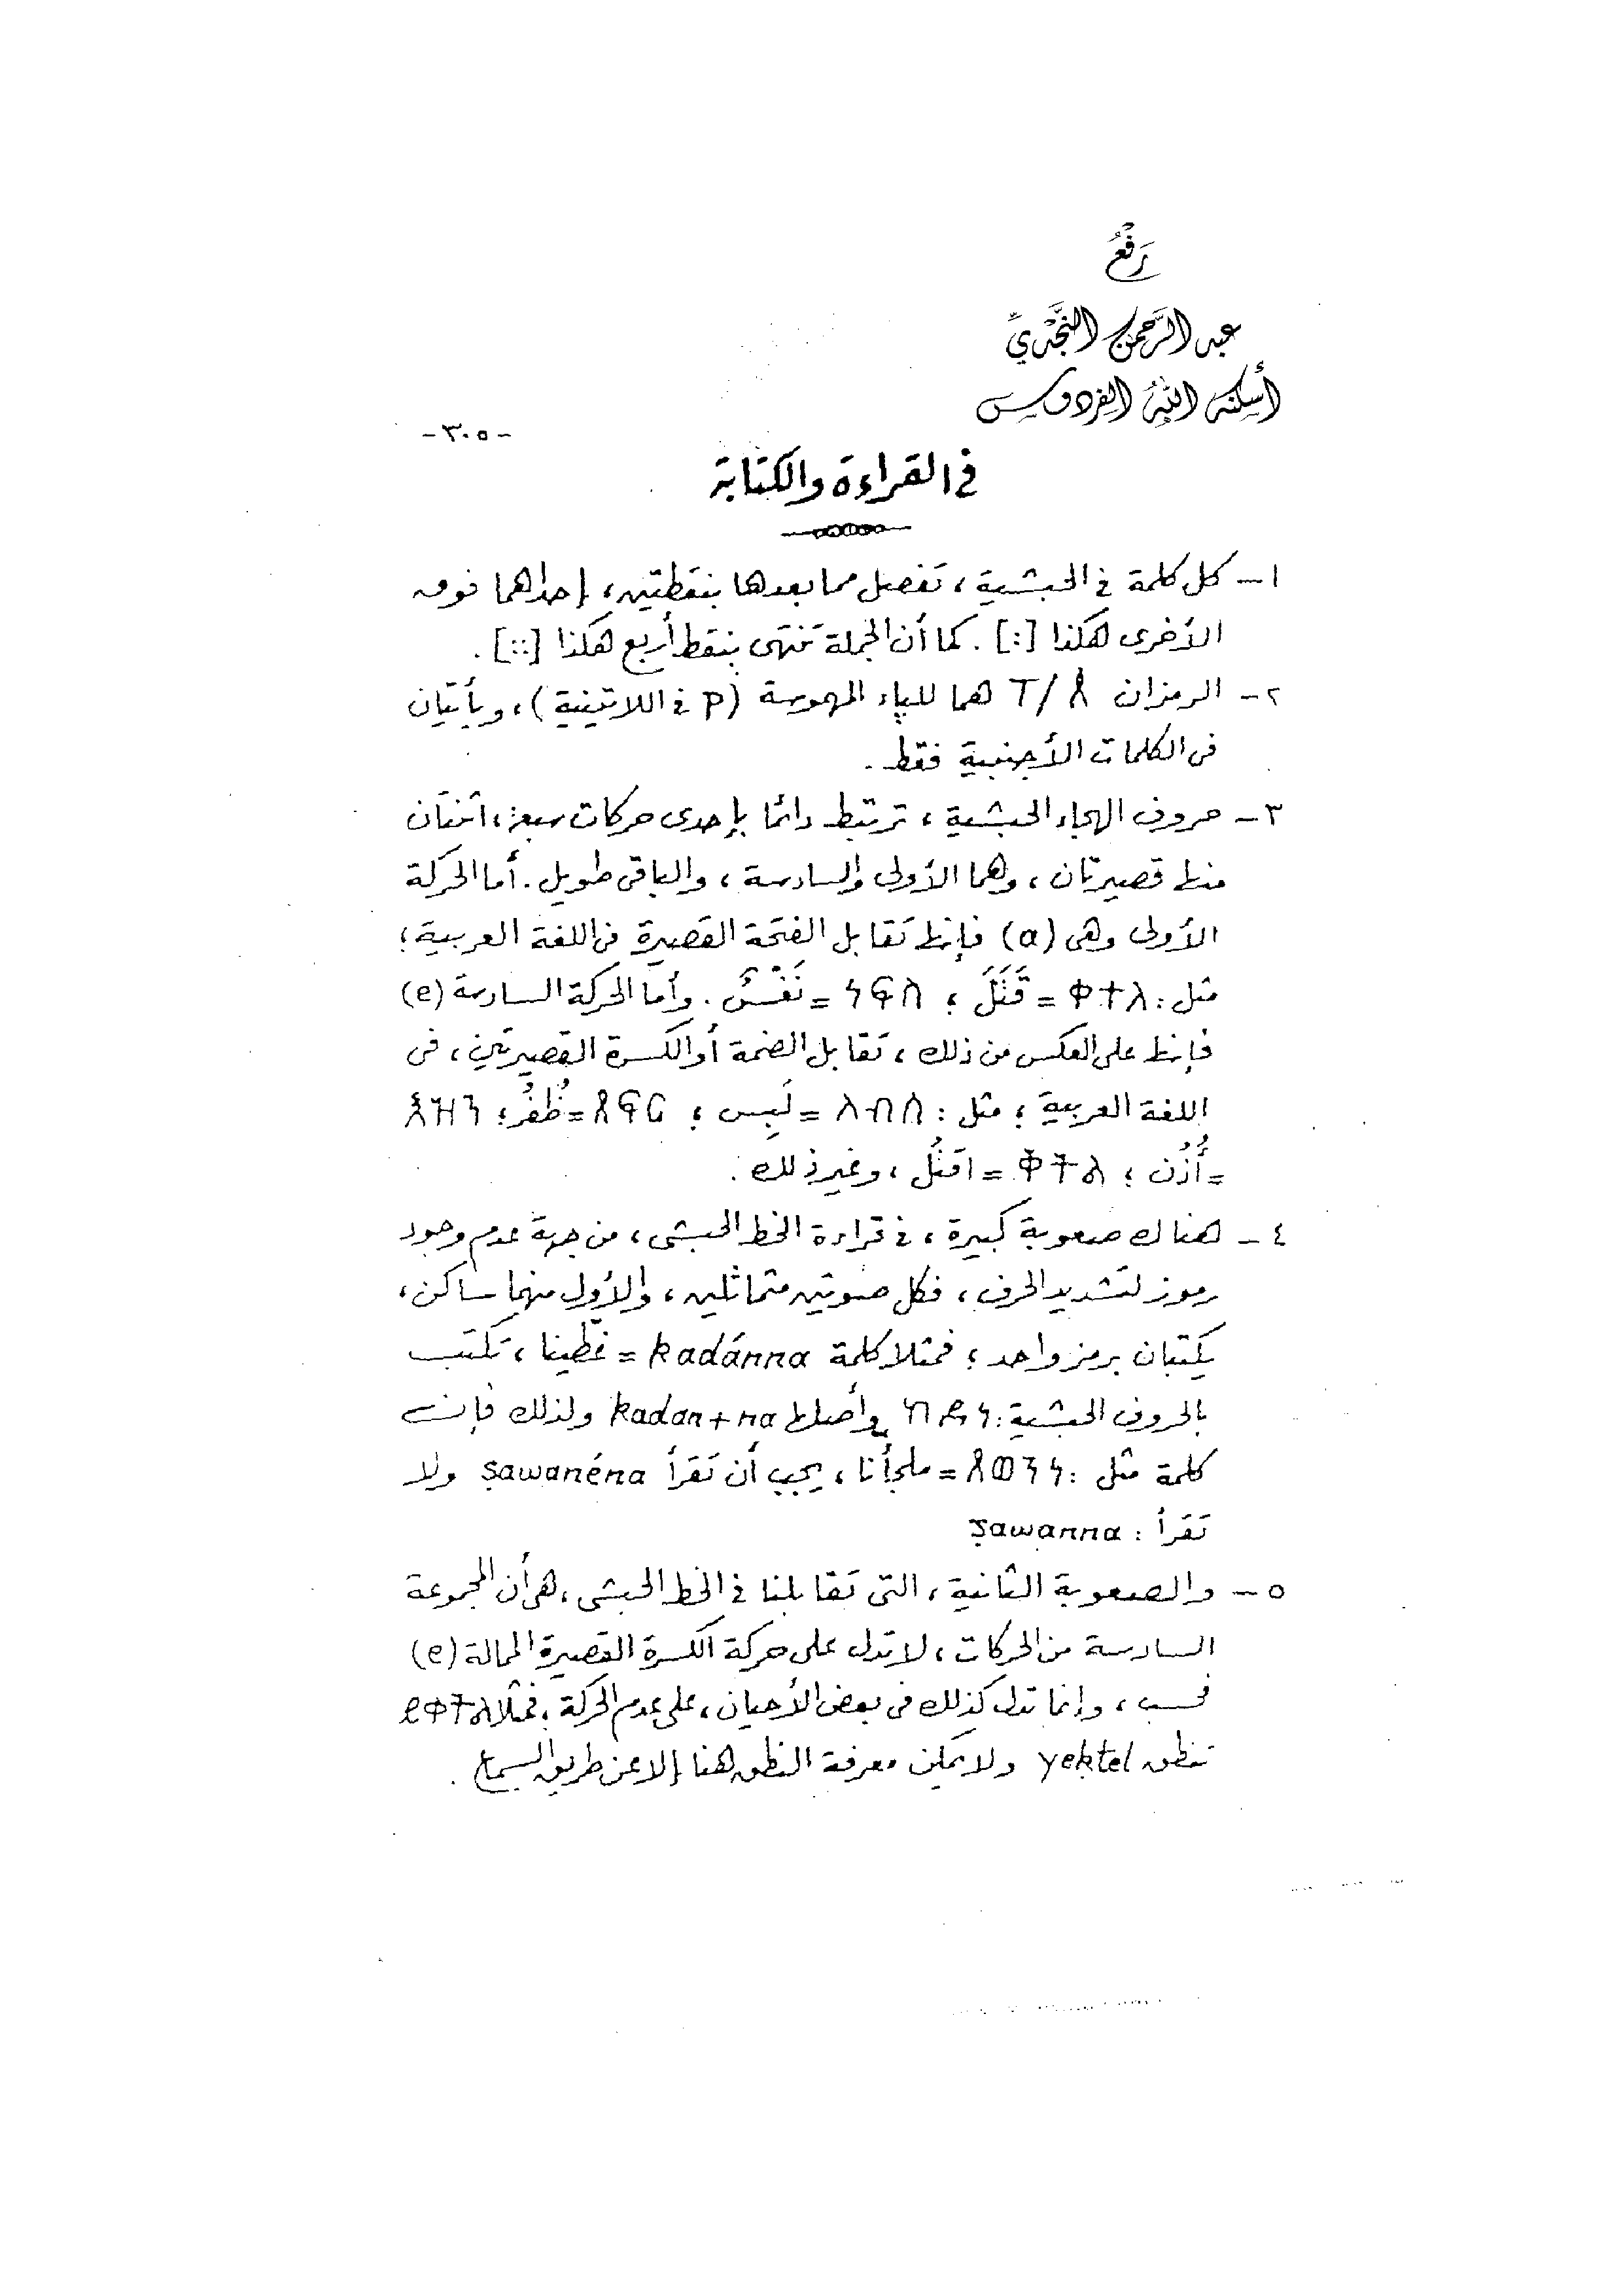 رَفْعُ
عبد الرَّحمن النَّجْديِّ
أسكنه اللهُ الفردوس
-٣٠٥-
في القراءة والكتابة
١- كل كلمة في الحبشية، تفصل مما بعدها بنقطتين، إحداهما فوق
الأخرى هكذا [:]. كما أن الجملة تنتهى بنقط أربع هكذا [::].
٢- الرمزان ጰ/ፐ هما للپاء المهموسة (p في اللاتينية)، ويأتيان
فى الكلمات الأجنبية فقط.
٣- حروف الهجاء الحبشية، ترتبط دائما بإحدى حركات سبعة، اثنتان
منها قصيرتان، وهما الأولى والسادسة، والباقى طويل. أما الحركة
الأولى وهى (a) فإنها تقابل الفتحة القصيرة فى اللغة العربية؛
مثل: ቀተለ = قَتَلَ؛ ነፍስ = نَفْسٌ. وأما الحركة السادسة (e)
فإنها على العكس من ذلك، تقابل الضمة أو الكسرة القصيرتين، فى
اللغة العربية؛ مثل: ለብሰ = لَبِس؛ ጽፍር = ظُفُر؛ እዝን
= أُذُن؛ ቅትል = اقتُل، وغير ذلك.
٤- هناك صعوبة كبيرة، في قراءة الخط الحبشى، من جهة عدم وجود
رموز لتشديد الحرف، فكل صوتين متماثلين، والأول منهما ساكن،
يكتبان برمز واحد؛ فمثلا كلمة kadánna = غطينا، تكتب
بالحروف الحبشية: ከደነ وأصلها kadan+na ولذلك فإن
كلمة مثل: ጸወንነ = ملجأنا، يجب أن تقرأ ṣawanéna ولا
تقرأ: ṣawanna
٥- والصعوبة الثانية، التى تقابلنا في الخط الحبشى، هى أن المجموعة
السادسة من الحركات، لا تدل على حركة الكسرة القصيرة الممالة (e)
فحسب، وإنما تدل كذلك فى بعض الأحيان، على عدم الحركة؛ فمثلا ይቀትል
تنطق yeḳtel ولا يمكن معرفة النطق هنا إلا عن طريق السماع.